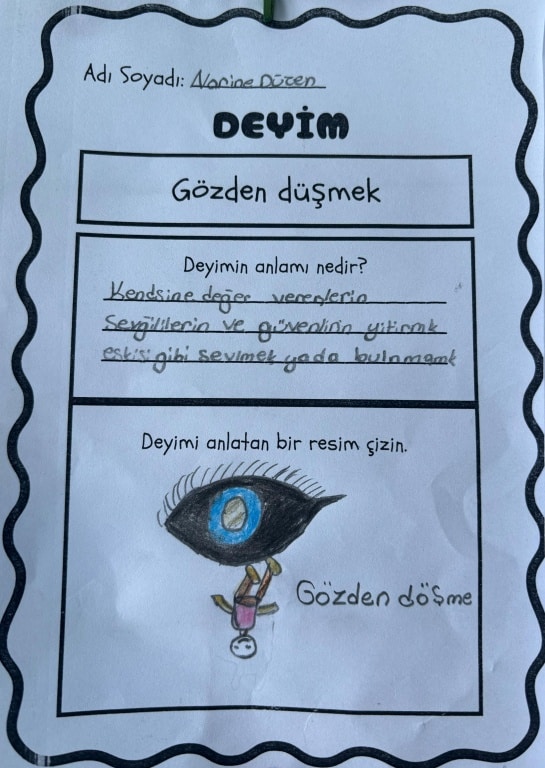 Adı Soyadı: Narine Düzen
DEYİM
Gözden düşmek
Deyimin anlamı nedir?
Kendsine değer verenlerin
Sevgililerin ve güvenlinin yitirmk
eskisi gibi sevimek yada bulnmamk
Deyimi anlatan bir resim çizin.
Gözden döşme